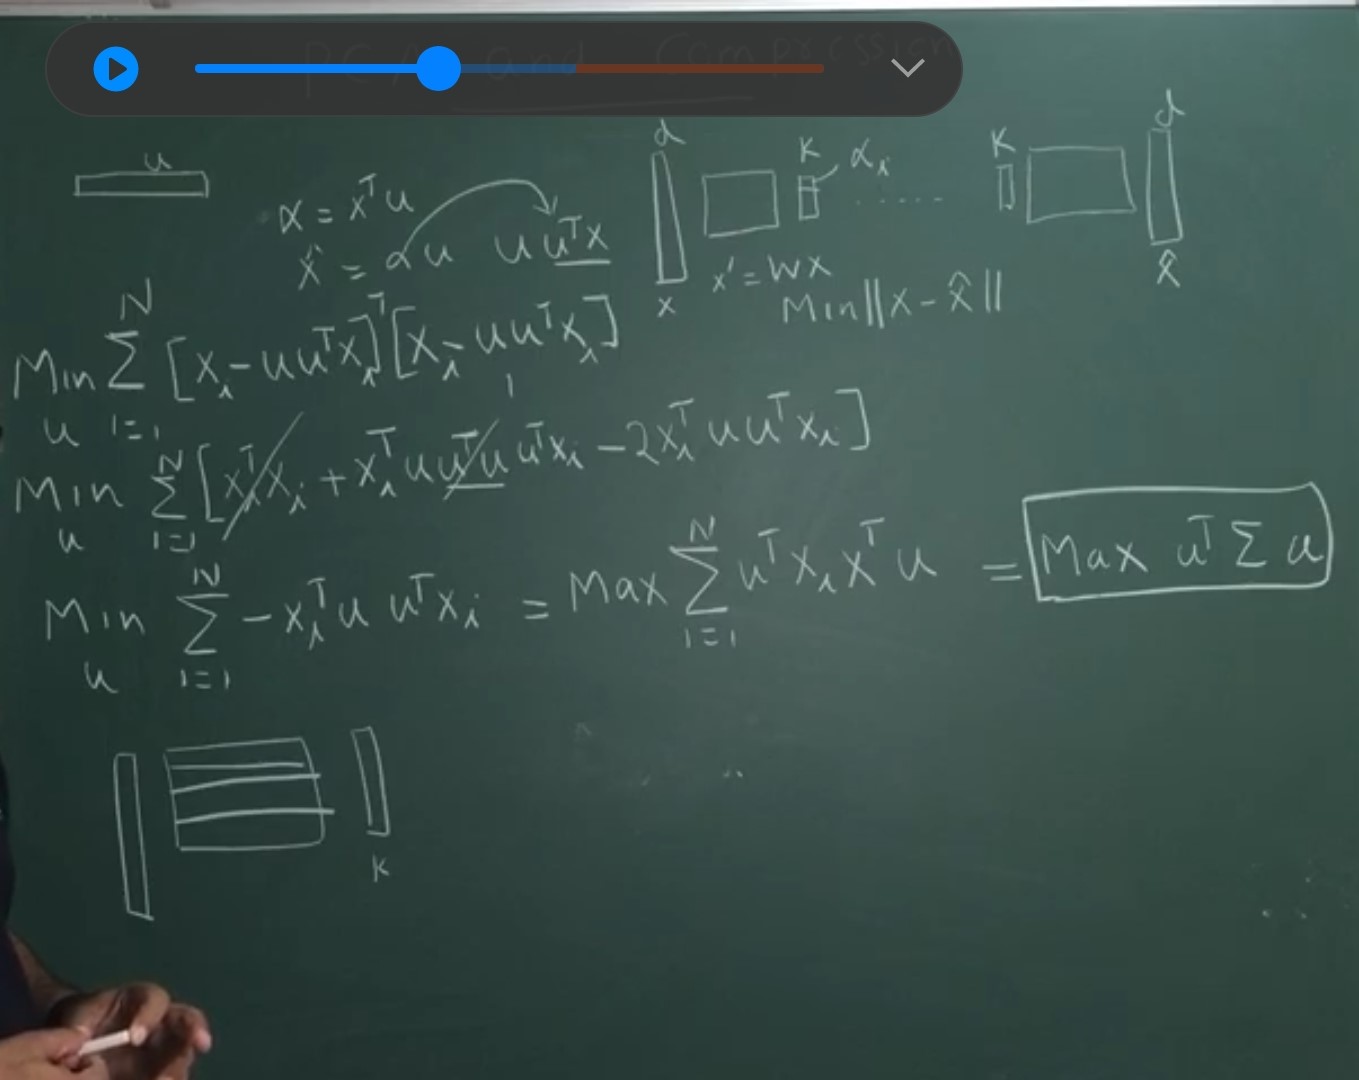 PCA and Compression
u
α = xᵀu
x' = αu  uuᵀx
d  K  αᵢ  ......  K  d
x  x' = Wx  x̂
Min ||x - x̂||
Min_u Σ_{i=1}^{N} [xᵢ - uuᵀxᵢ]ᵀ[xᵢ - uuᵀxᵢ]
1
Min_u Σ_{i=1}^{N} [xᵢᵀxᵢ + xᵢᵀu uᵀu uᵀxᵢ - 2xᵢᵀuuᵀxᵢ]
Min_u Σ_{i=1}^{N} - xᵢᵀu uᵀxᵢ = Max Σ_{i=1}^{N} uᵀxᵢxᵀu = Max uᵀΣu
K